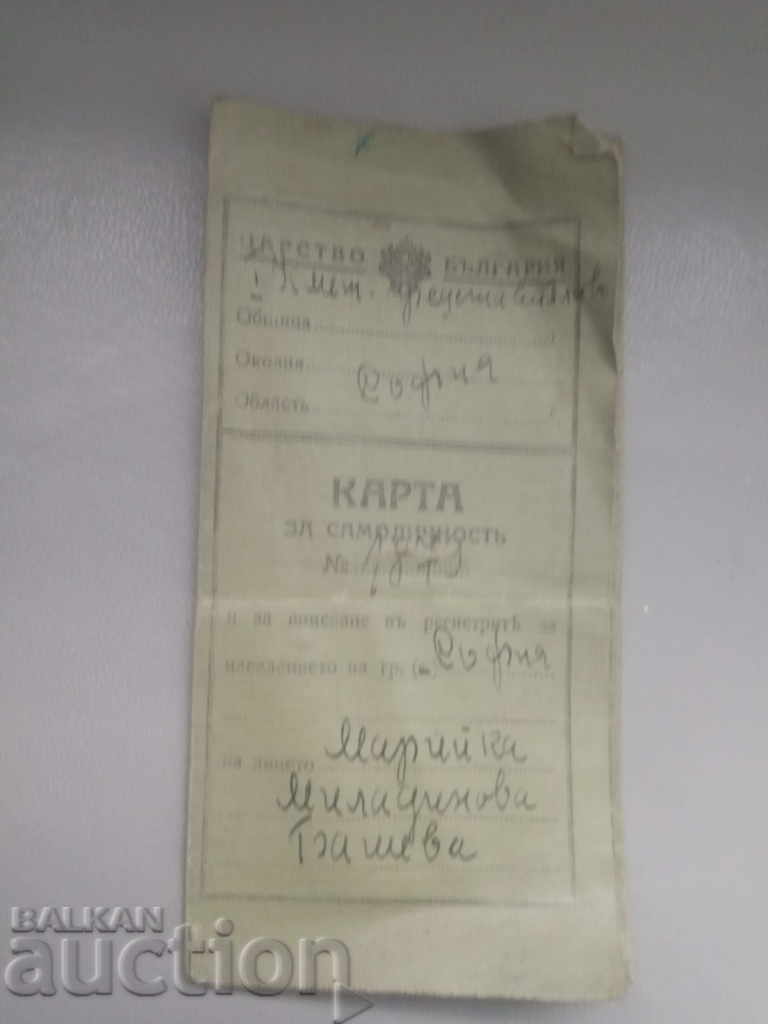 ЦАРСТВО БЪЛГАРИЯ
I Кмет.
Община
Околия София
Область
КАРТА
ЗА САМОЛИЧНОСТЬ
№
и за вписване въ регистритѣ за
населението на гр. (с.) София
на лицето Марийка
Миладинова
BALKAN
auction